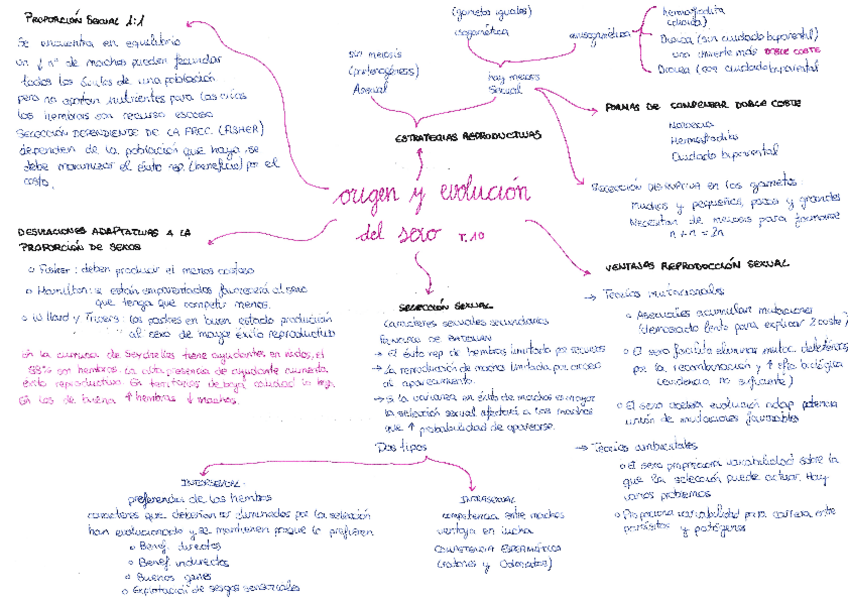 PROPORCIÓN SEXUAL 1:1
Se encuentra en equilibrio
un ↓ nº de machos pueden fecundar
todos los óvulos de una población
pero no aportan nutrientes para las crías
las hembras son recurso escaso
SELECCIÓN DEPENDIENTE DE LA FREC. (FISHER)
dependen de la población que haya, se
debe maximizar el éxito rep. (beneficio) por el
costo.
(gametos iguales)
isogamética
anisogamética
hermafrodita
Dioica (sin cuidado biparental)
una muerte más DOBLE COSTE
Dioica (con cuidado biparental
sin meiosis
(partenogénesis)
Asexual
hay meiosis
Sexual
ESTRATEGIAS REPRODUCTIVAS
FORMAS DE COMPENSAR DOBLE COSTE
Hermafrodita
Cuidado biparental
SELECCIÓN DISRUPTIVA en los gametos
Muchos y pequeños, pocos y grandes
Necesitan de meiosis para fusionarse
n + n = 2n
origen y evolución
del sexo T.10
DESVIACIONES ADAPTATIVAS A LA
PROPORCIÓN DE SEXOS
o Fisher: deben producir el menos costoso
o Hamilton: si están emparentados favorecerá al sexo
que tenga que competir menos.
o Willard y Trivers: los padres en buen estado producirán
al sexo de mayor éxito reproductivo
de Seychelles tiene ayudantes en nidos, el
88% son hembras. La alta presencia de ayudante aumenta
éxito reproductivo. En territorios de baja calidad lo baja
En los de buena ↑ hembras ↓ machos.
SELECCIÓN SEXUAL
caracteres sexuales secundarios
PRINCIPIO DE BATEMAN
→ El éxito rep de hembras limitado por recursos
→ La reproducción de machos limitada por
de apareamiento.
→ Si la varianza en éxito de machos es mayor
la selección sexual afectará a los machos
que ↑ probabilidad de aparearse.
Dos tipos
VENTAJAS REPRODUCCIÓN SEXUAL
→ Teorías mutacionales
o Asexuales acumulan mutaciones
(demasiado lento para explicar 2 coste)
o El sexo facilita eliminar mutac. deletéreas
por la recombinación y ↑
(evidencia no suficiente)
o El sexo acelera evolución adap. potencia
unión de mutaciones favorables
→ Teorías ambientales
o El sexo proporciona variabilidad sobre la
que la selección puede actuar. Hay
varios problemas
o Proporciona variabilidad para carrera entre
parásitos y patógenos
INTERSEXUAL
preferencias de las hembras
caracteres que deberían ser eliminados por la selección
han evolucionado y se mantienen porque lo prefieren
o Benef. directos
o Benef. indirectos
o Buenos genes
o Explotación de sesgos sensoriales
INTRASEXUAL
competencia entre machos
ventaja en lucha
COMPETENCIA ESPERMÁTICA
(ratones y